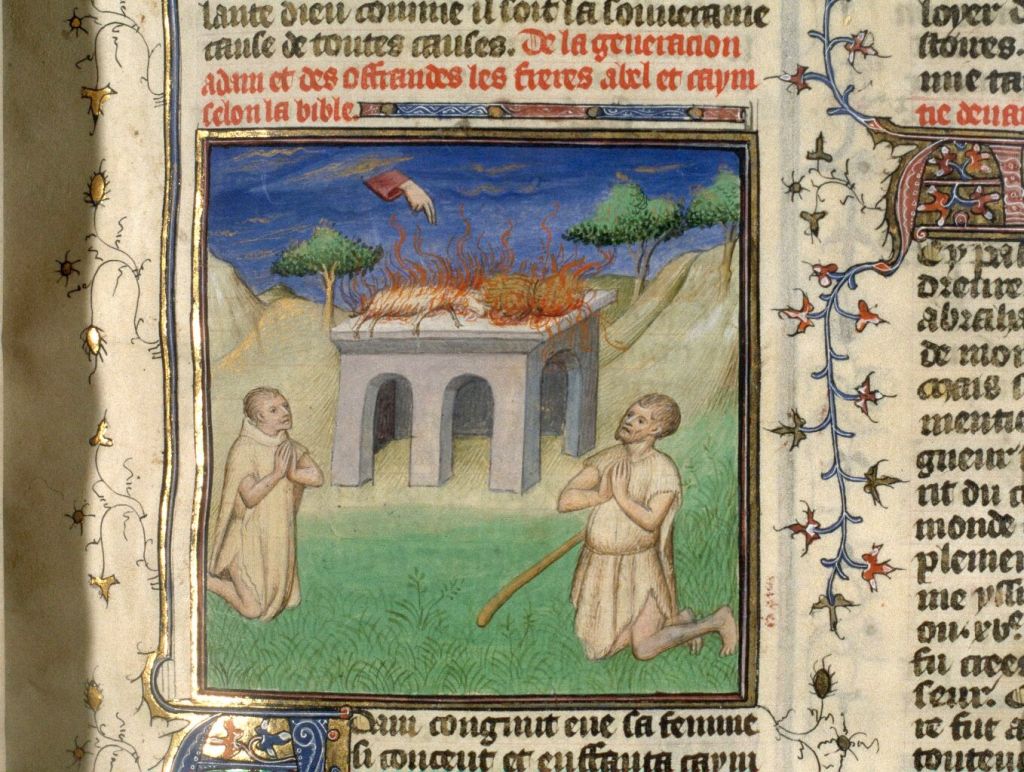 lante dieu comme il soit la souveraine
cause de toutes causes. De la generacion
adam et des offrandes les freres abel et caym
selon la bible.
Adam congnut eve sa femme
si conceut et enffanta caym
loyer d
stoires.
me ta
tie devan
Cy pal
drelire
abraha
de mon
mais s
mentio
gneur
rit du c
monde
plemen
me yssi
ou. xve.
fu crees
seur. C
re fut a
toutevo